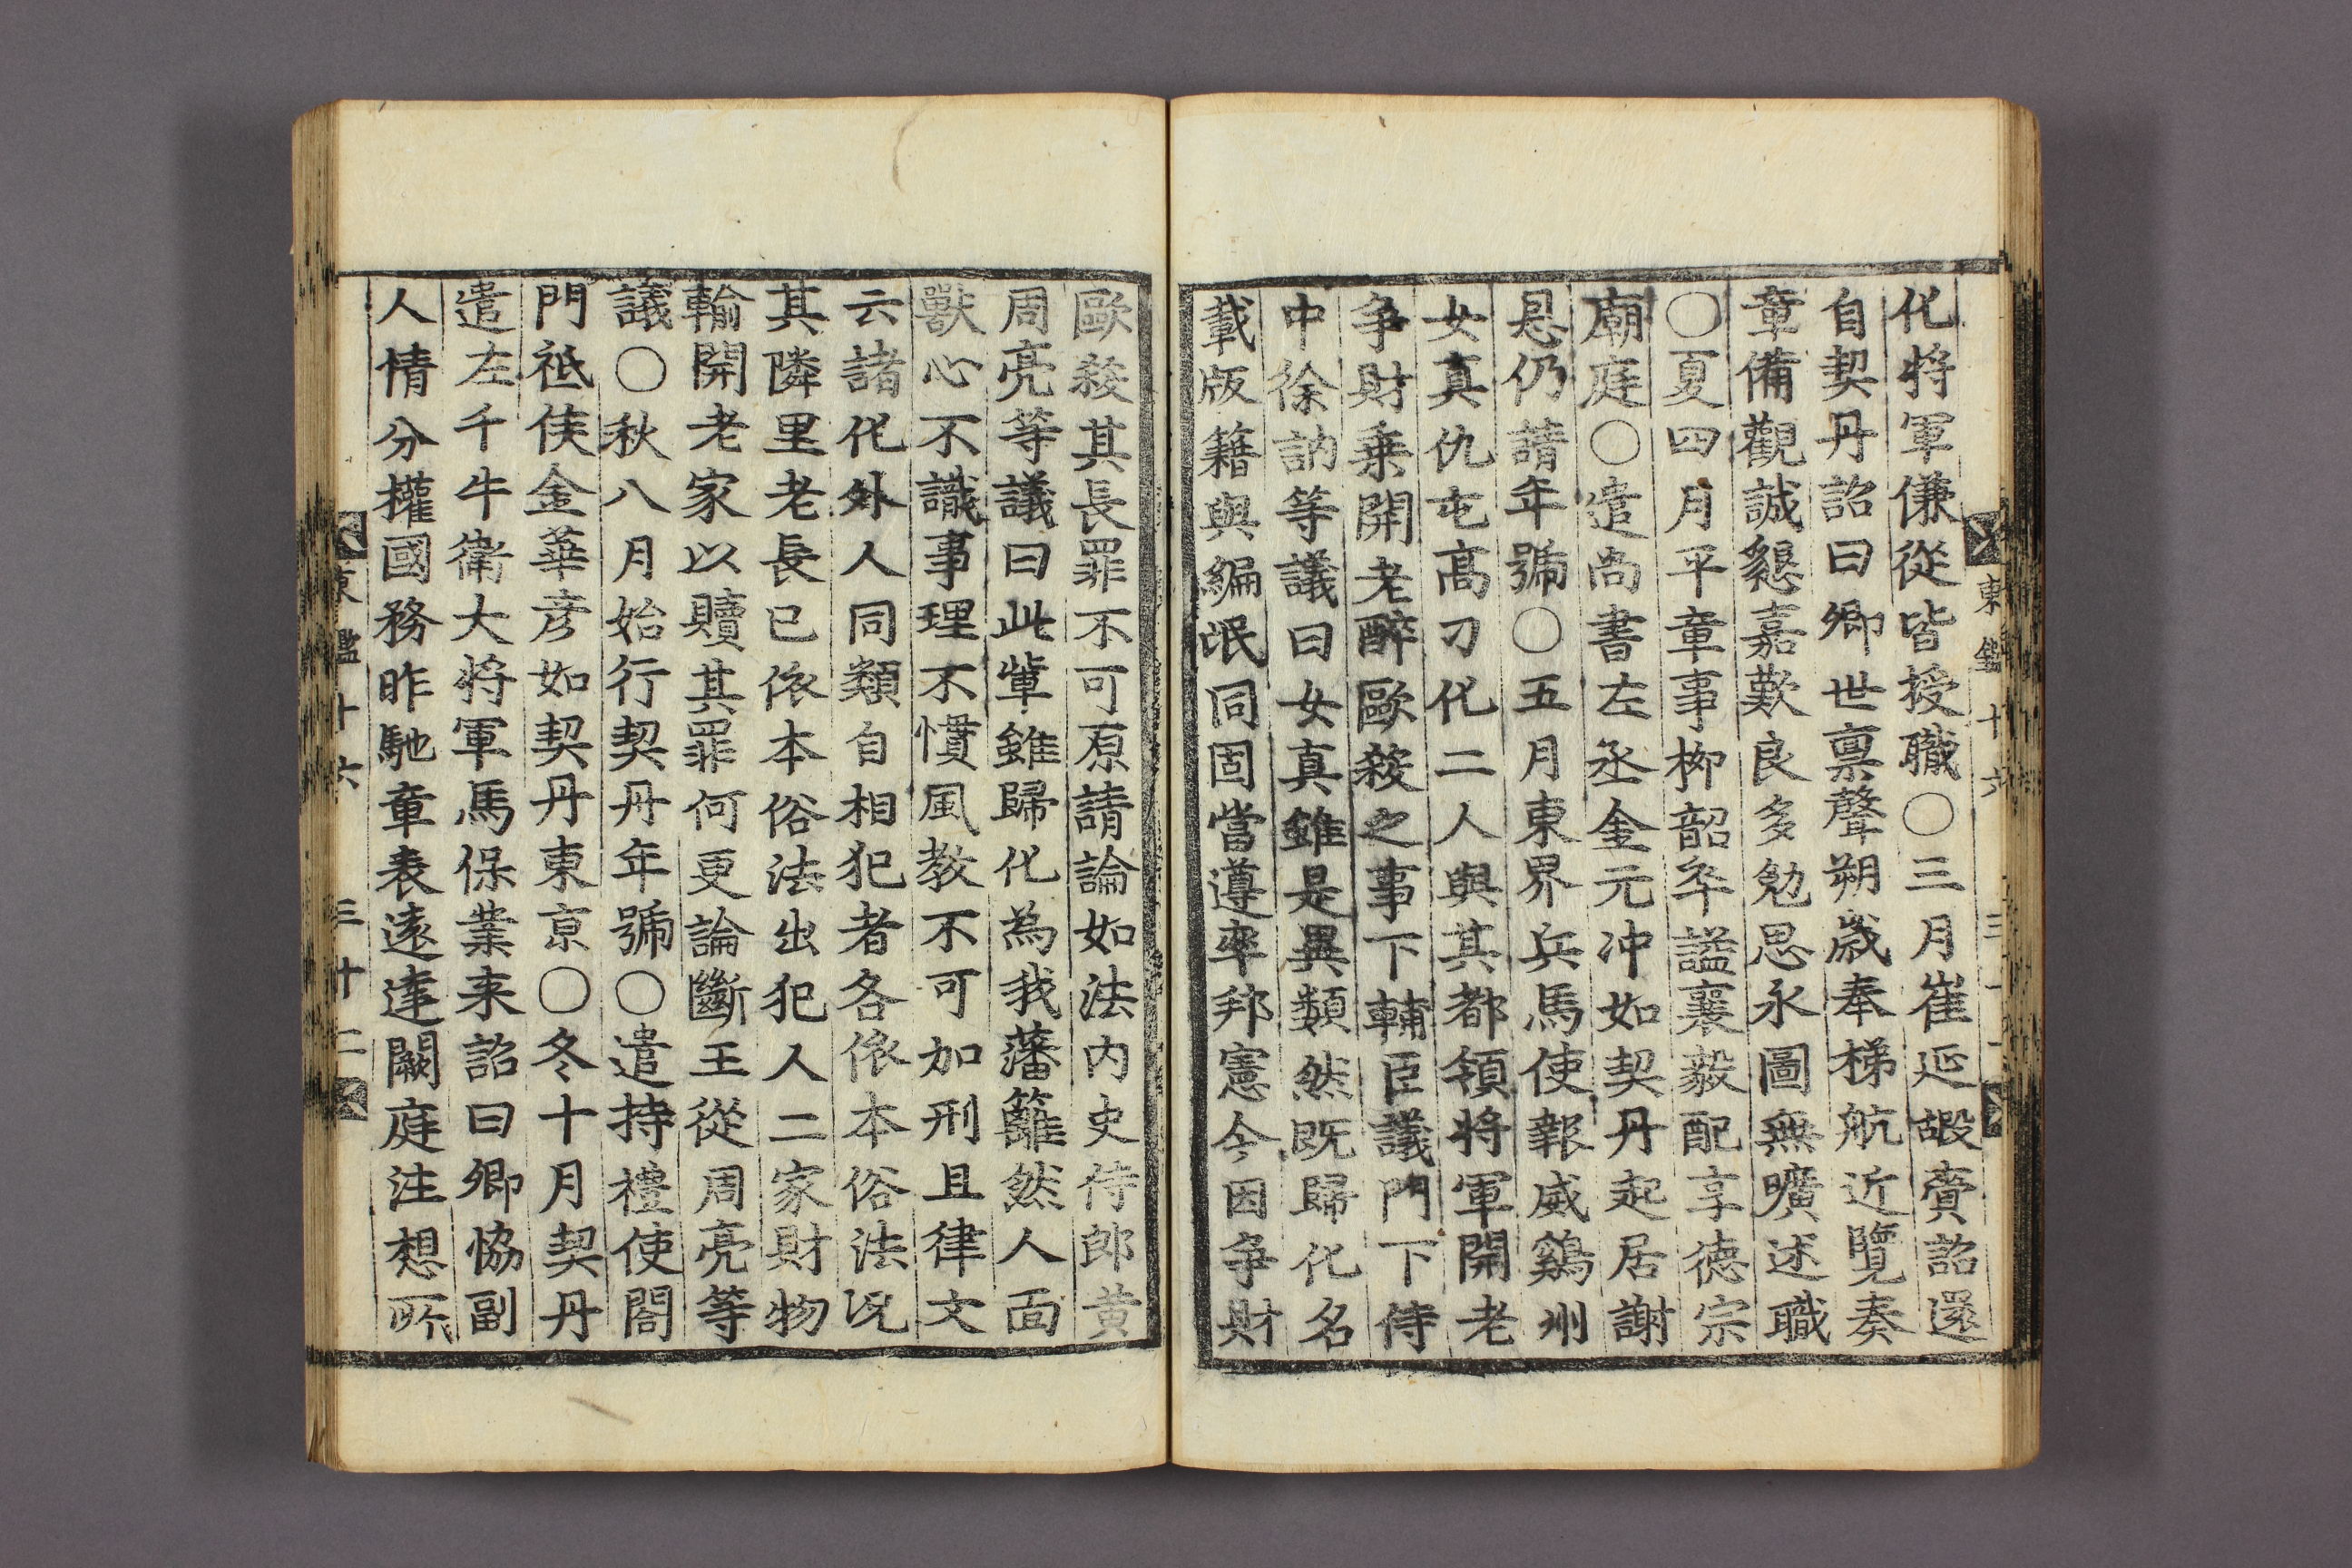 化將軍傔從皆授職○三月崔延嘏賫詔還
自契丹詔曰卿世禀聲朔歲奉梯航近覽奏
章備觀誠懇嘉歎良多勉思永圖無曠述職
○夏四月平章事柳韶卒謚襄毅配享德宗
廟庭○遣尚書左丞金元冲如契丹起居謝
恩仍請年號○五月東界兵馬使報威鷄州
女真仇屯高刀化二人與其都領將軍開老
争財乗開老醉歐殺之事下輔臣議門下侍
中徐訥等議曰女真雖是異類然既歸化名
載版籍與編氓同固當遵率邦憲今因争財
歐殺其長罪不可原請論如法内史侍郎黄
周亮等議曰此軰雖歸化為我藩籬然人面
獸心不識事理不慣風教不可加刑且律文
云諸化外人同類自相犯者各依本俗法况
其隣里老長已依本俗法出犯人二家財物
輸開老家以贖其罪何更論斷王從周亮等
議○秋八月始行契丹年號○遣持禮使閤
門祗候金華彦如契丹東京○冬十月契丹
遣左千牛衛大將軍馬保業来詔曰卿恊副
人情分權國務昨馳章表遠達闕庭注想所
東鑑十六 三十二